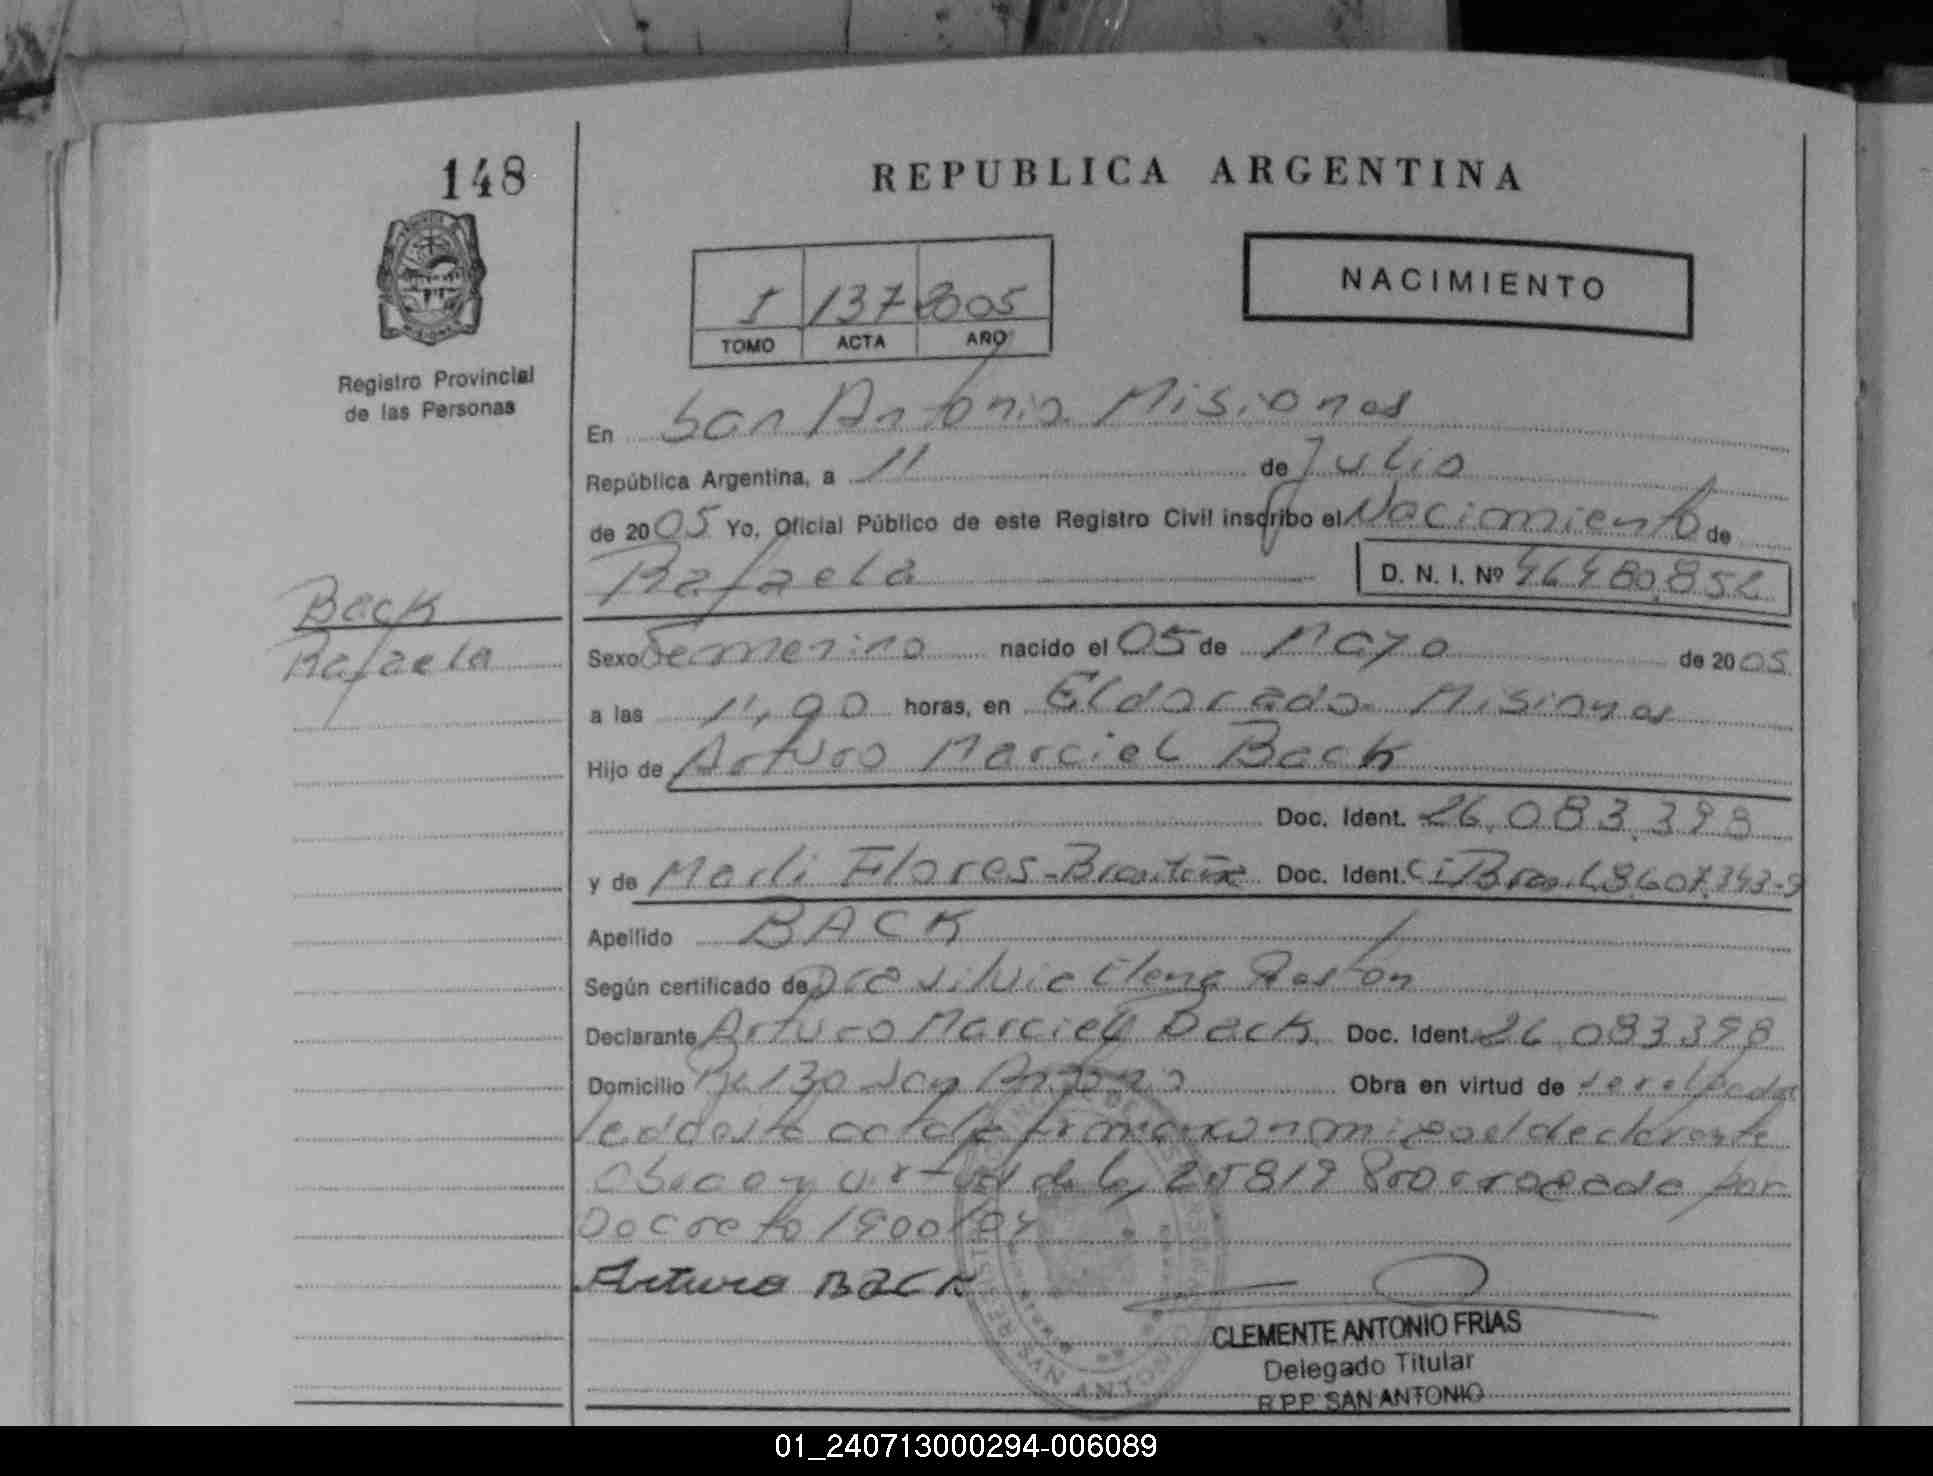 148
REPUBLICA ARGENTINA
NACIMIENTO
I 137 2005
TOMO ACTA AÑO
Registro Provincial
de las Personas
En San Antonio Misiones
República Argentina, a 11 de Julio
de 2005 Yo, Oficial Público de este Registro Civil inscribo el Nacimiento de
Rafaela D. N. I. Nº 46480.852
Back
Rafaela
Sexo Femenino nacido el 05 de Mayo de 2005
a las 11,00 horas, en Eldorado Misiones
Hijo de Arturo Marciel Back
Doc. Ident. 26.083.398
y de Marli Flores - Doc. Ident. CI Brasil 8.607.343-9
Apellido BACK
Según certificado de Dra Silvia Elena
Declarante Arturo Marciel Back Doc. Ident. 26.083398
Domicilio San Antonio Obra en virtud de
acta la firma conmigo el declarante
Obra en virtud de ley 25819 Prorrogada por
Decreto 1900/04
Arturo BACK
CLEMENTE ANTONIO FRIAS
Delegado Titular
R.P.P. SAN ANTONIO
01_240713000294-006089